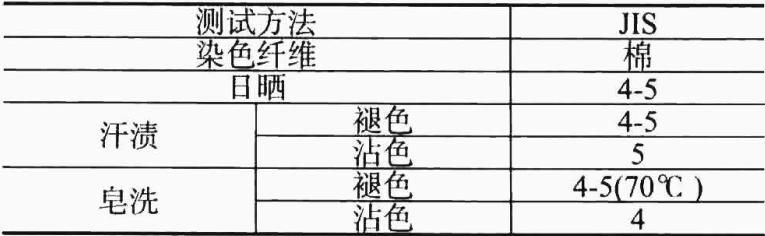 测试方法 JIS
染色纤维 棉
日晒 4-5
汗渍 褪色 4-5
沾色 5
皂洗 褪色 4-5(70℃ )
沾色 4